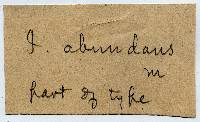 I. abundans
m
part of type